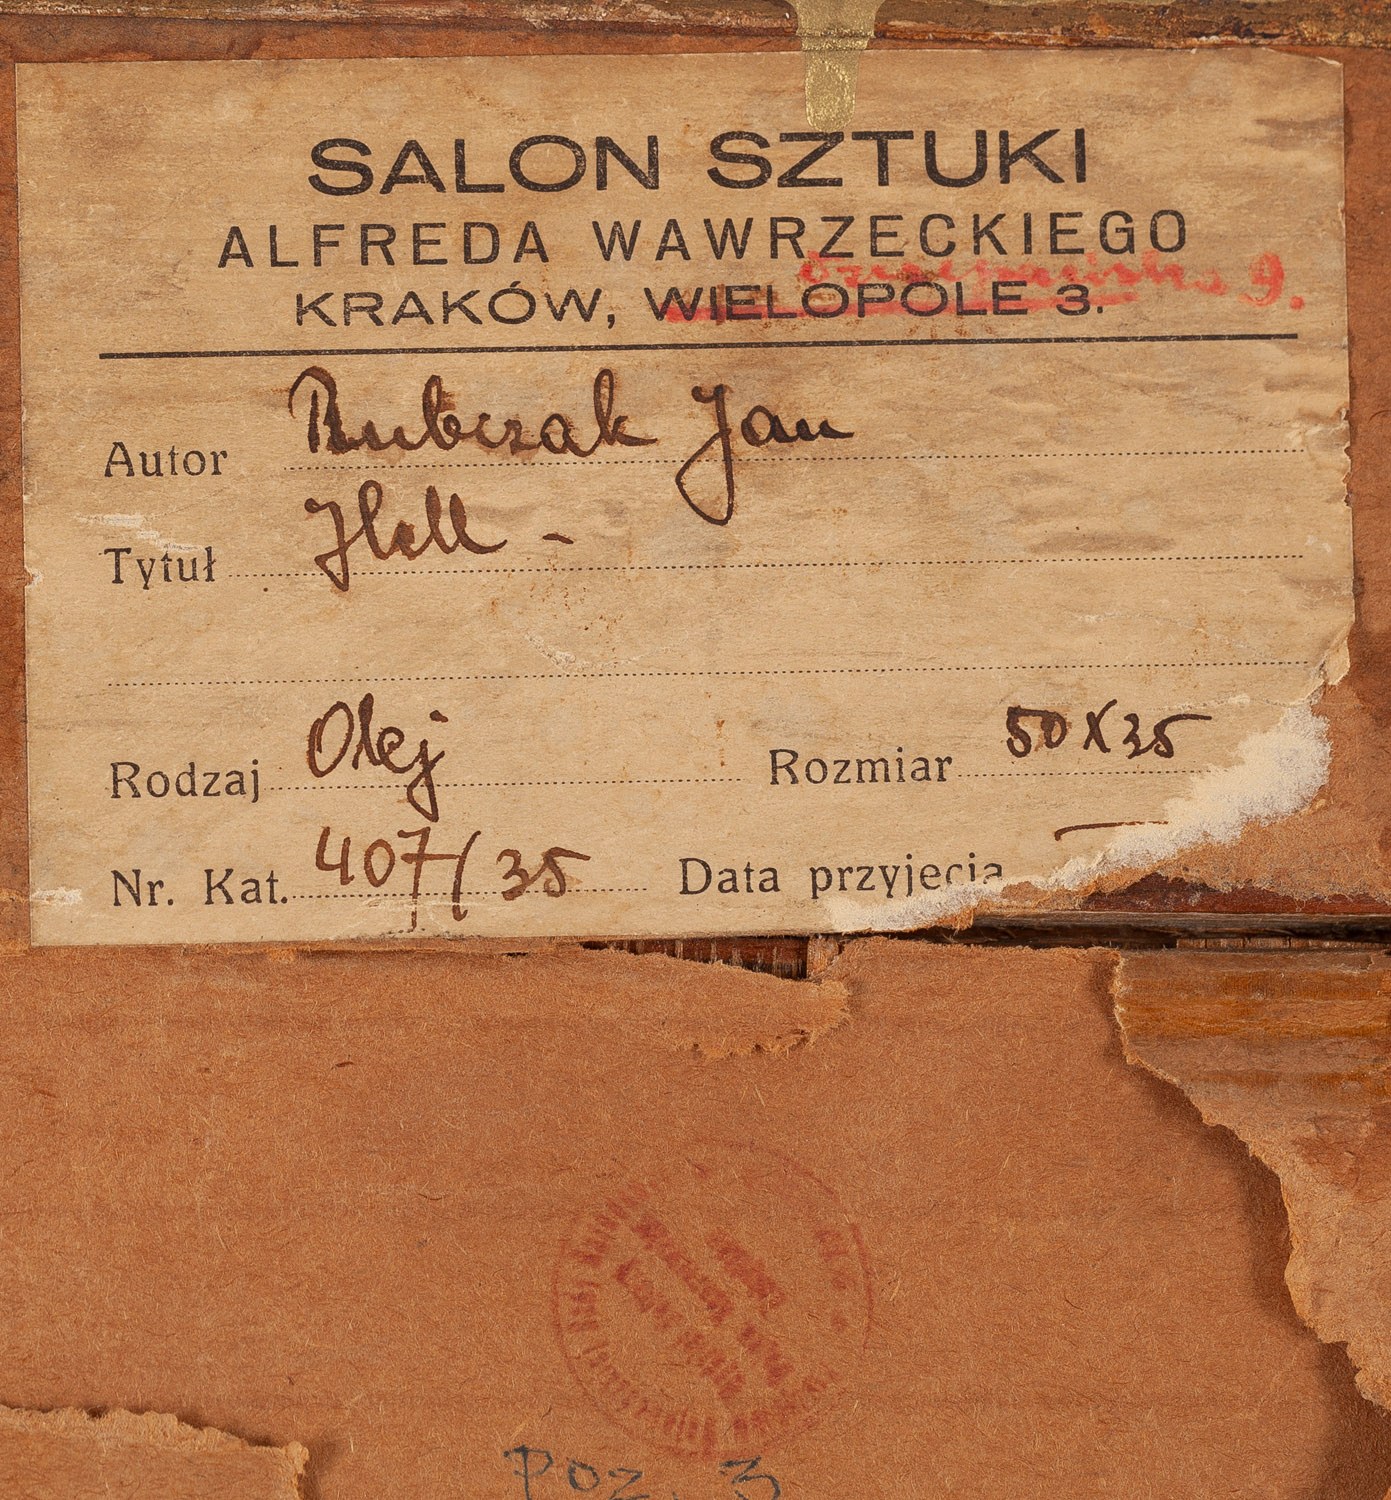 SALON SZTUKI
ALFREDA WAWRZECKIEGO
9.
KRAKÓW, WIELOPOLE 3.
Autor Rubczak Jan
Tytuł Hell -
Rodzaj Olej Rozmiar 50 X 35
Nr. Kat. 407/35 Data przyjęcia
Poz. 3